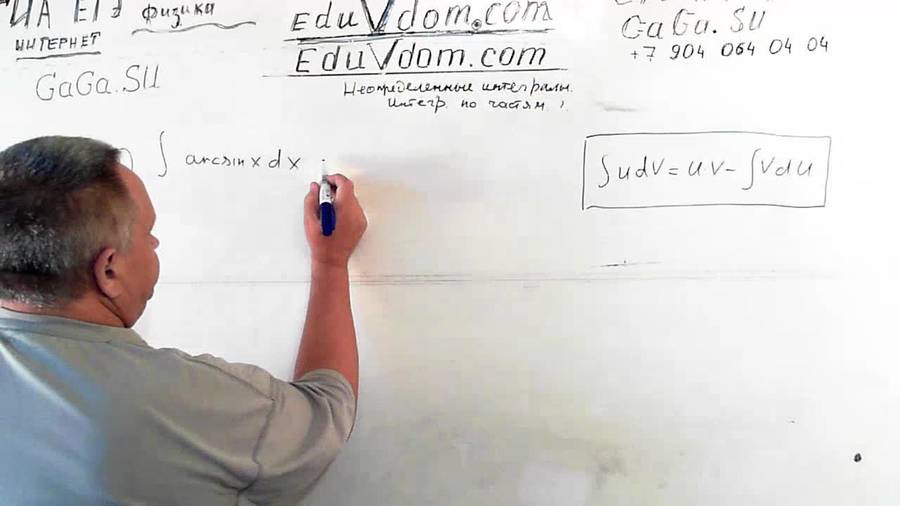 ИА ЕГЭ физика
ИНТЕРНЕТ
GaGa.SU
EduVdom.com
EduVdom.com
Неопределенные интегралы.
Интегр. по частям.
GaGa.SU
+7 904 064 04 04
∫ arcsin x dx
∫udV = u·V - ∫Vdu